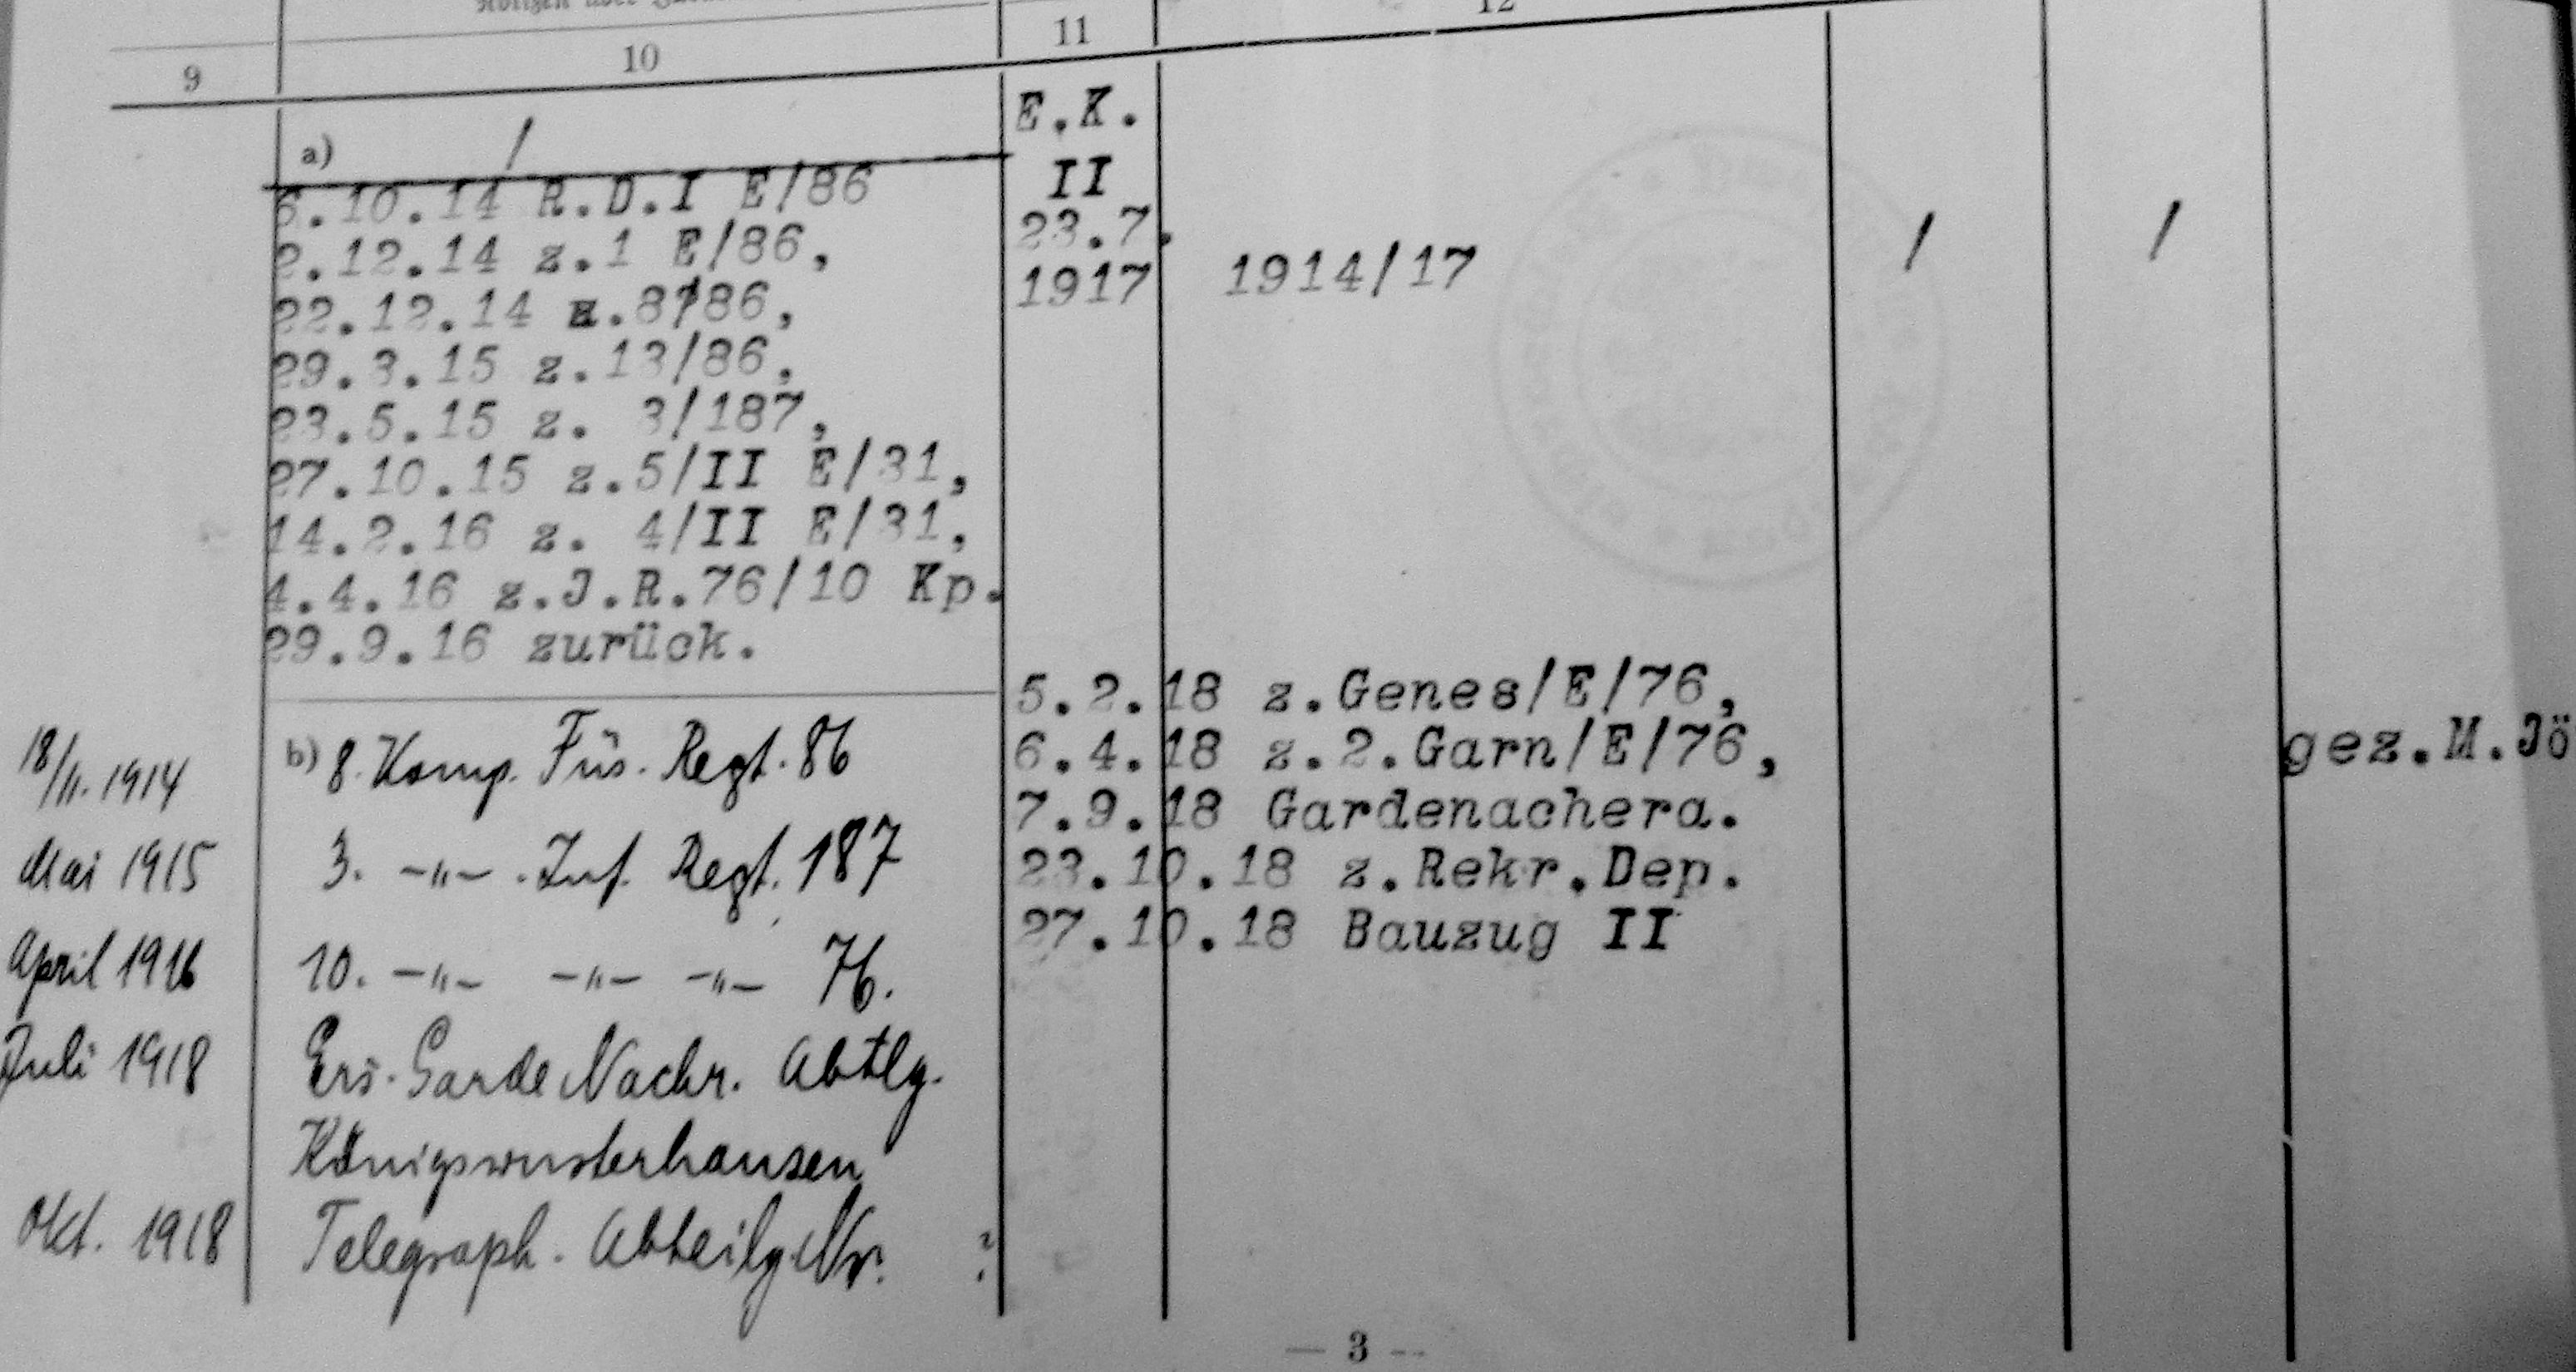 9
10
11
12
a) /
6.10.14 R.D.I E/86
2.12.14 z.1 E/86,
22.12.14 z.8/86,
29.3.15 z.13/86,
23.5.15 z. 3/187,
27.10.15 z.5/II E/31,
14.2.16 z. 4/II E/31,
4.4.16 z.J.R.76/10 Kp.
29.9.16 zurück.
E.K.
II
23.7.
1917
1914/17
/
/
18/11. 1914 b) 8. Komp. Füs. Regt. 86
Mai 1915 3. -"- . Inf. Regt. 187
April 1916 10. -"- -"- -"- 76.
Juli 1918 Ers. Garde Nachr. Abtlg.
Königswusterhausen
Okt. 1918 Telegraph. Abteilg. Nr. ?
5.2.18 z.Genes/E/76,
6.4.18 z.2.Garn/E/76,
7.9.18 Gardenachera.
23.10.18 z.Rekr.Dep.
27.10.18 Bauzug II
gez.M.Jö
— 3 —